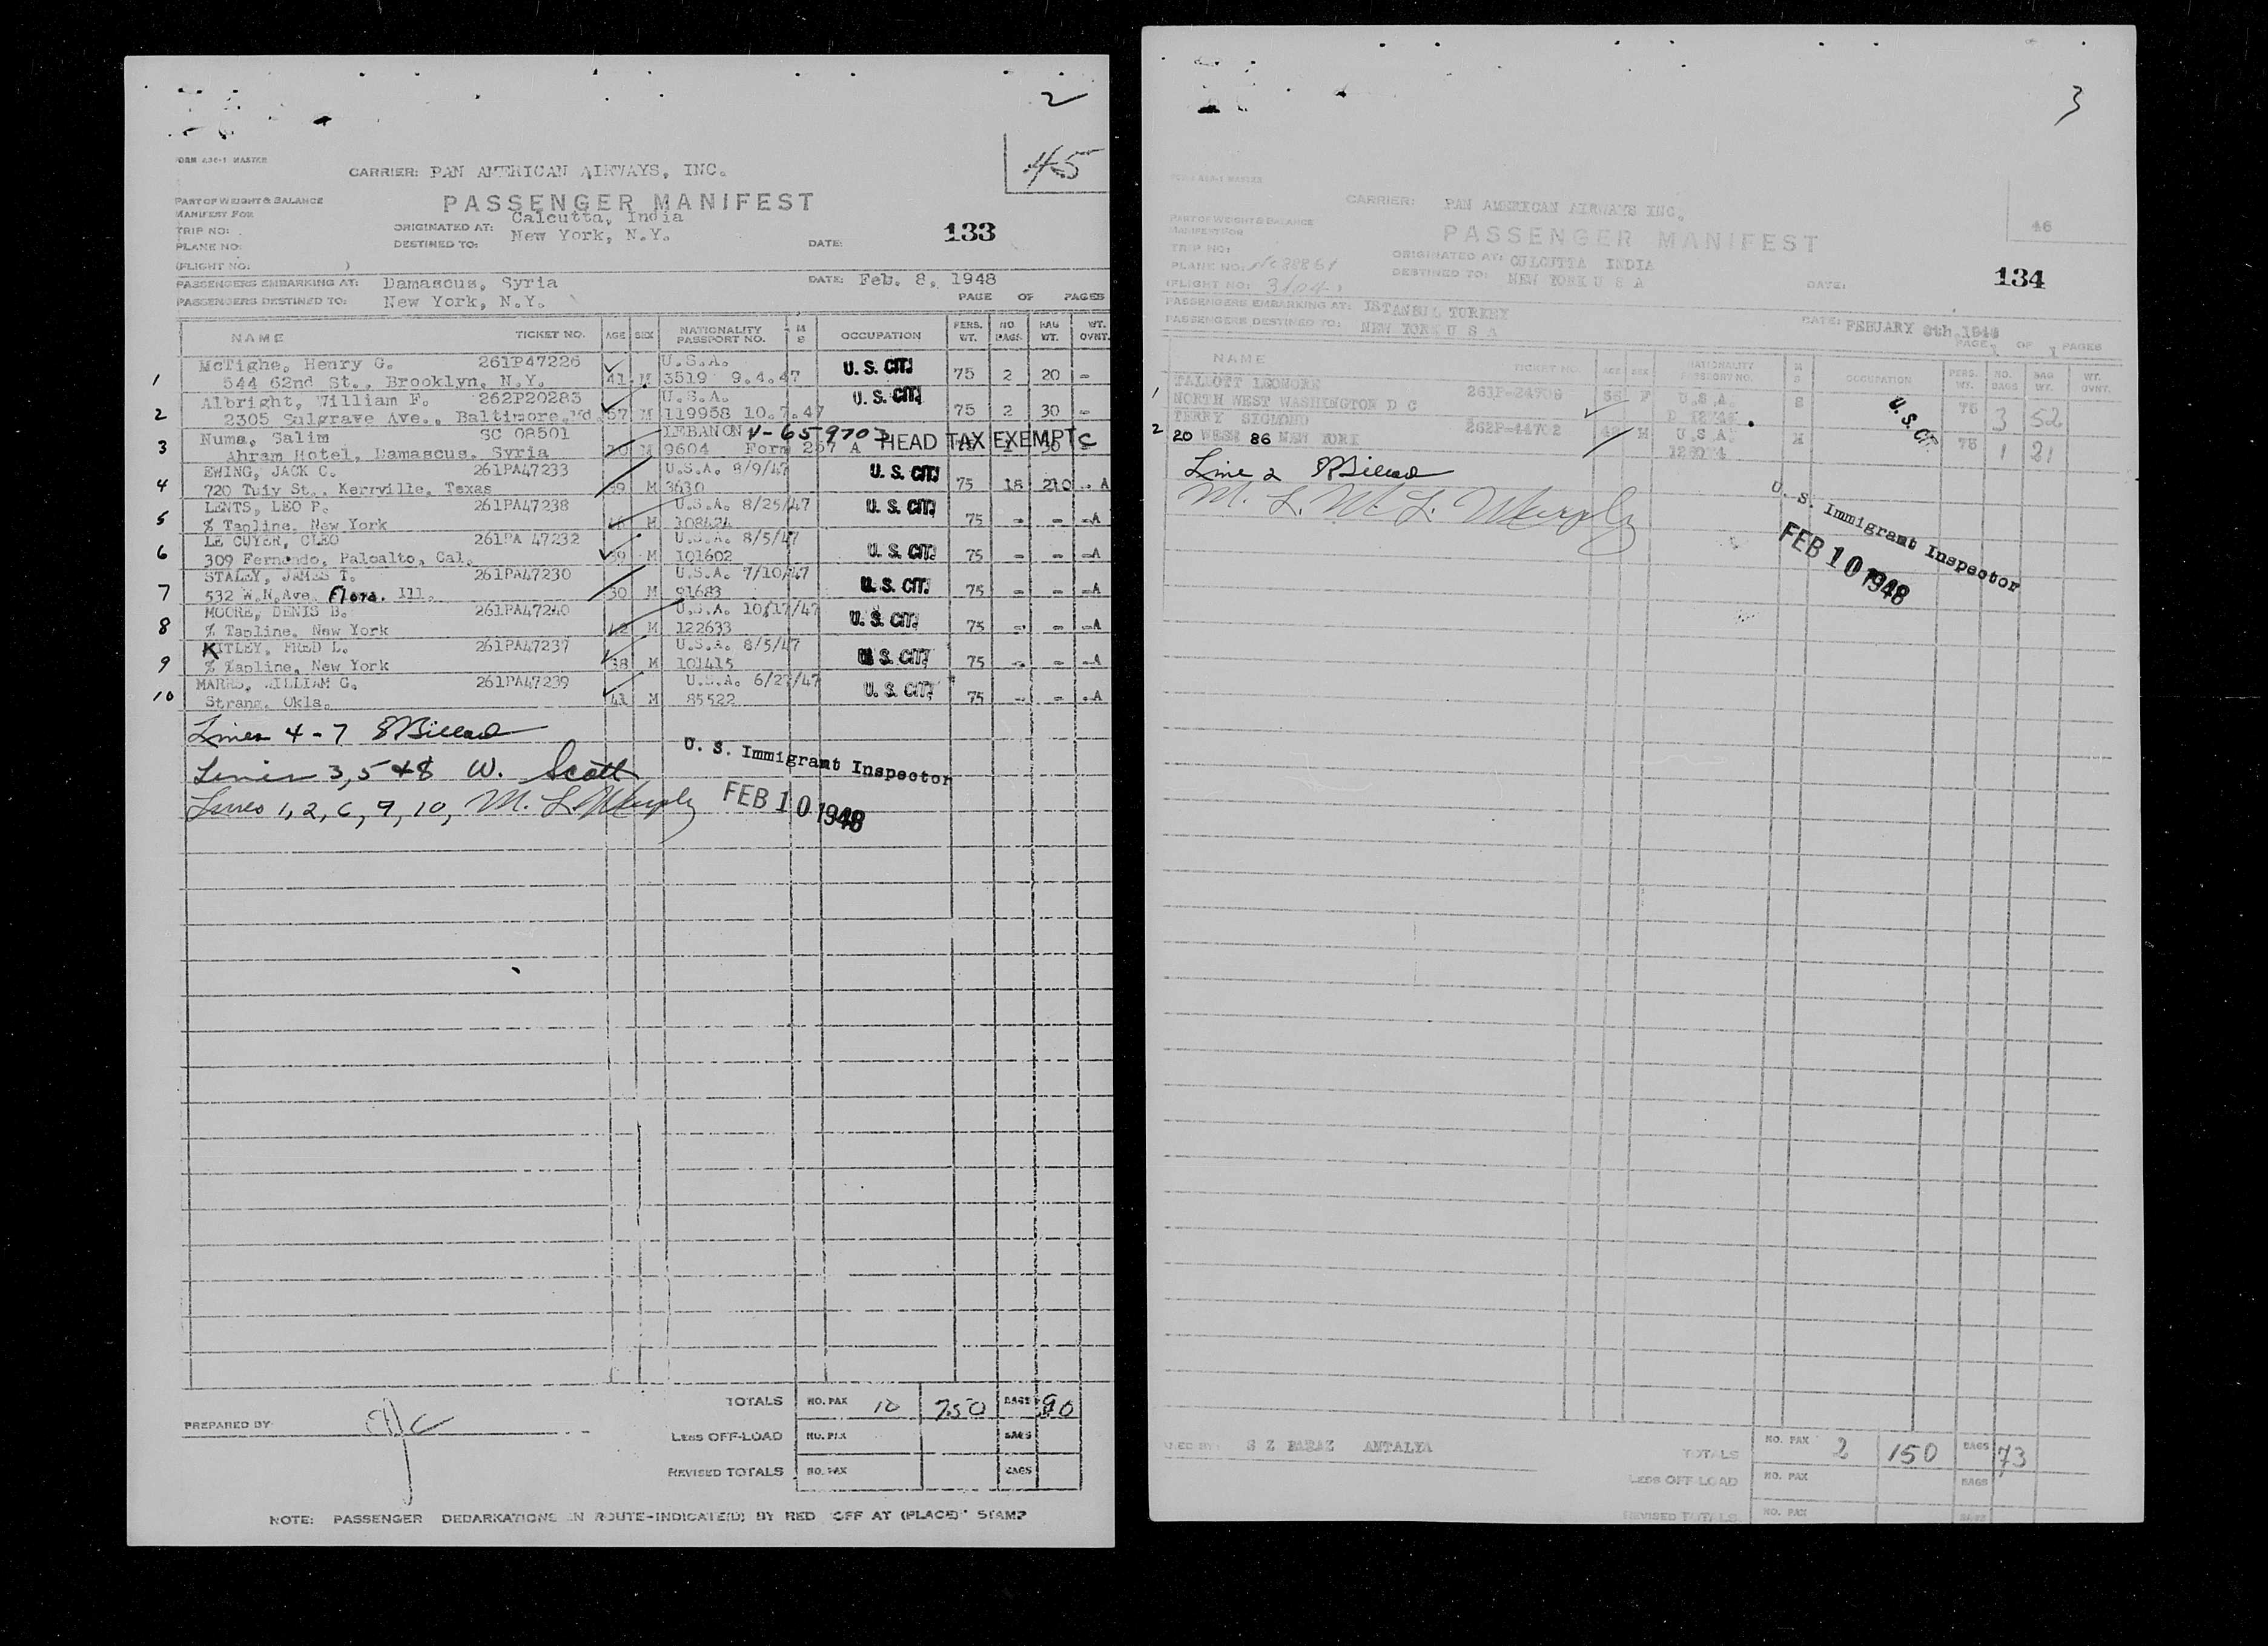 2
FORM 436-1 MASTER
45
CARRIER: PAN AMERICAN AIRWAYS, INC.
PART OF WEIGHT & BALANCE
PASSENGER MANIFEST
MANIFEST FOR
Calcutta, India
TRIP NO:
ORIGINATED AT:
133
PLANE NO:
DESTINED TO: New York, N.Y.
DATE:
(FLIGHT NO: )
PASSENGERS EMBARKING AT: Damascus, Syria DATE: Feb. 8, 1948
PASSENGERS DESTINED TO: New York, N.Y. PAGE OF PAGES
NAME TICKET NO. AGE SEX NATIONALITY PASSPORT NO. M S OCCUPATION PERS. WT. NO BAGS BAG WT. WT. OVNT.
McTighe, Henry G. 261P47226 U.S.A. U.S. CIT.
1 544 62nd St., Brooklyn, N.Y. 41 M 3519 9.4.47 75 2 20 -
Albright, William F. 262P20283 U.S.A. U.S. CIT.
2 2305 Sulgrave Ave., Baltimore, Md. 57 M 119958 10.7.47 75 2 30 -
Numa, Salim SC 08501 LEBANON V-659703 HEAD TAX EXEMPT C
3 Ahram Hotel, Damascus, Syria M 9604 Form 257 A
EWING, JACK C. 261PA47233 U.S.A. 8/9/47 U.S. CIT.
4 720 St., Kerrville, Texas M 3630 75 18 210 - A
LENTS, LEO P. 261PA47238 U.S.A. 8/25/47 U.S. CIT.
5 % Tapline, New York M 75 - - -A
LE CUYER, CLEO 261PA 47232 U.S.A. 8/5/47 U.S. CIT.
6 309 Fernando, Paloalto, Cal. M 101602 75 - - -A
STALEY, JAMES T. 261PA47230 U.S.A. 7/10/47 U.S. CIT.
7 532 W.N.Ave. Flora. Ill. 30 M 91683 75 - - -A
MOORE, DENIS B. 261PA47240 U.S.A. 10/17/47 U.S. CIT.
8 % Tapline, New York M 122633 75 - - -A
KITLEY, FRED L. 261PA47237 U.S.A. 8/5/47 U.S. CIT.
9 % Tapline, New York 38 M 101415 75 - - -A
MARRS, WILLIAM G. 261PA47239 U.S.A. 6/27/47 U.S. CIT.
10 Strang, Okla. 41 M 85522 75 - - -A
Lines 4-7
Lines 3, 5 & 8 W. Scott
U. S. Immigrant Inspector
Lines 1, 2, 6, 9, 10, M. L. Murphy
FEB 10 1948
TOTALS NO. PAX 10 750 BAGS 90
PREPARED BY:
LESS OFF-LOAD NO. PAX BAGS
REVISED TOTALS NO. PAX BAGS
NOTE: PASSENGER DEBARKATIONS EN ROUTE-INDICATE(D) BY RED "OFF AT (PLACE)" STAMP
3
FORM 436-1 MASTER
CARRIER: PAN AMERICAN AIRWAYS INC.
46
PART OF WEIGHT & BALANCE
PASSENGER MANIFEST
MANIFEST FOR
TRIP NO:
ORIGINATED AT: CULCUTTA INDIA
PLANE NO: NC88861
DESTINED TO: NEW YORK U S A
134
(FLIGHT NO: 3/04 )
DATE:
PASSENGERS EMBARKING AT: ISTANBUL TURKEY DATE: FEBUARY 8th.1948
PASSENGERS DESTINED TO: NEW YORK U S A PAGE 1 OF 1 PAGES
NAME TICKET NO. AGE SEX NATIONALITY PASSPORT NO. M S OCCUPATION PERS. WT. NO. BAGS BAG WT. WT. OVNT.
1 TALLOTT LEONORE 261P-24709 F U.S.A. S 75 3 52
NORTH WEST WASHINGTON D C
U.S. CIT.
TERRY SIGMUND 262P-44702 M U.S.A. M 75 1 21
2 20 WEST 86 NEW YORK
Line 2
M. L. M. L. Murphy
U. S. Immigrant Inspector
FEB 10 1948
S Z ANTALYA
TOTALS NO. PAX 2 150 BAGS 73
LESS OFF-LOAD NO. PAX BAGS
REVISED TOTALS NO. PAX BAGS